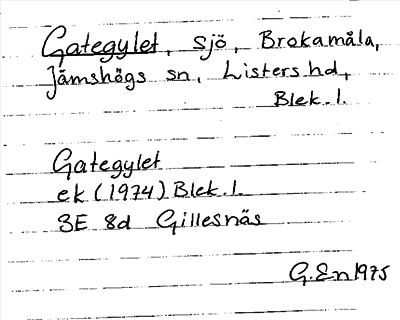 Gategylet, sjö, Brokamåla,
Jämshögs sn, Listers hd,
Blek. l.
Gategylet
ek (1974) Blek. l.
3E 8d Gillesnäs
G.En 1975